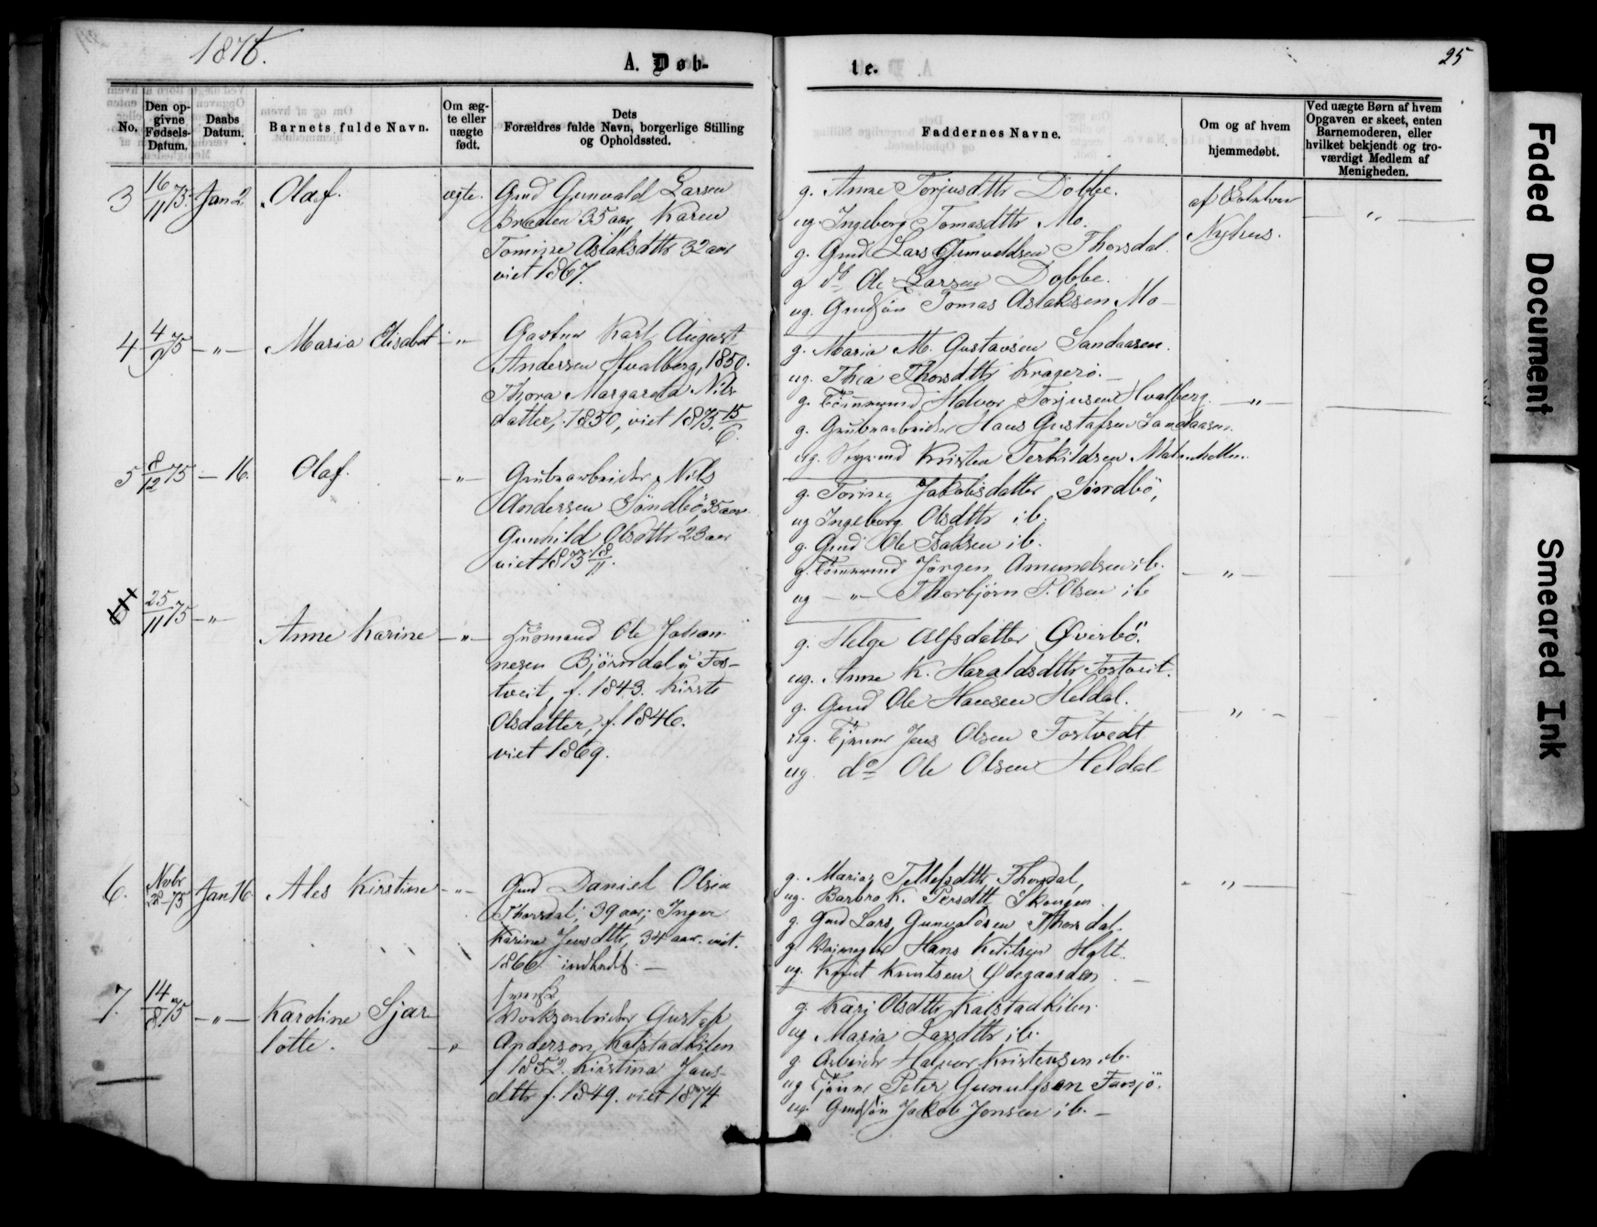 1876.
A. Døb-
te.
25
No.
Den op-
givne
Fødsels-
Datum.
Daabs
Datum.
Barnets fulde Navn.
Om æg-
te eller
uægte
født.
Dets
Forældres fulde Navn, borgerlige Stilling
og Opholdssted.
Faddernes Navne.
Om og af hvem
hjemmedøbt.
Ved uægte Børn af hvem
Opgaven er skeet, enten
Barnemoderen, eller
hvilket bekjendt og tro-
værdigt Medlem af
Menigheden.
3 16/11 75. Jan 2. Olaf. ægte.
Gmd Gunvald Larsen
35 aar, Karen
Tomine Aslaksdttr 32 aar
viet 1867.
g. Anne Torjusdttr Dobbe.
ug. Ingeborg Tomasdttr Mo.
g. Gmd Lars Gunvaldsen Thorsdal.
g do Ole Larsen Dobbe.
ug. Gmdsøn Tomas Aslaksen Mo
af
Nyhus.
4 4/9 75 — " — Maria Elisabet — " —
Gartner Karl August
Andersen Hvalberg, 1850.
Thora Margareta Nils-
datter, 1850, viet 1875 15/6.
g. Maria M. Gustavsen Sandaasen.
ug. Thea Thorsdttr Kragerø.
g. Tømmermd Halvor Torjusen Hvalberg. — " —
g. Grubearbeider Hans Gustafsen Sandaasen.
ug. Kristen Terkildsen
5 8/12 75 — 16. Olaf. — " —
Grubearbeider Nils
Andersen Søndbø, 35 aar
Gunhild Olsdttr 23 aar
viet 1873 18/11.
g. Torine Jakobsdatter Søndbø,
ug Ingeborg Olsdttr ib.
g. Gmd Ole Isaksen ib.
g. Tømmermd Jørgen Amundsen ib.
ug — " — Thorbjørn P. Olsen ib
— " —
25/11 75 — " — Anne Karine — " —
Husmand Ole Johan-
nesen Bjørndal u Fos-
tveit, f. 1843. Kirste
Olsdatter, f. 1846.
viet 1869.
g. Helge Alfsdatter Øverbø.
ug. Anne K. Haraldsdttr Fostveit.
g. Gmd Ole Hansen Heldal.
ug. Tjener Jens Olsen Fostvedt
ug. do Ole Olsen Heldal
— " —
6. Nvbr 75 Jan 16 Ales Kirstine — " —
Gmd Daniel Olsen
Thorsdal, 39 aar; Inger
Karine Jensdttr, 34 aar. viet.
1866
g. Maria Tellefsdttr Thorsdal,
ug. Barbro K. Persdttr Skougen.
g Gmd Lars Gunvaldsen Thorsdal.
g Hans Ketilsen Holt.
ug. Knut Knutsen Ødegaarden
— " —
7. 14/8 75 — " — Karoline Sjar-
lotte. — " —
Værksarbeider Gustaf
Anderson, Kalstadkilen
f 1852. Kirstina Jans-
dttr f. 1849. viet 1874
g. Kari Olsdttr Kalstadkilen.
ug Maria Larsdttr ib.
g Arbeider Halvor Kristensen ib.
ug Tjener Peter Gunulfsen Fossjø.
ug. Gmdsøn Jakob Jonsen ib. —
Faded Document
Smeared Ink